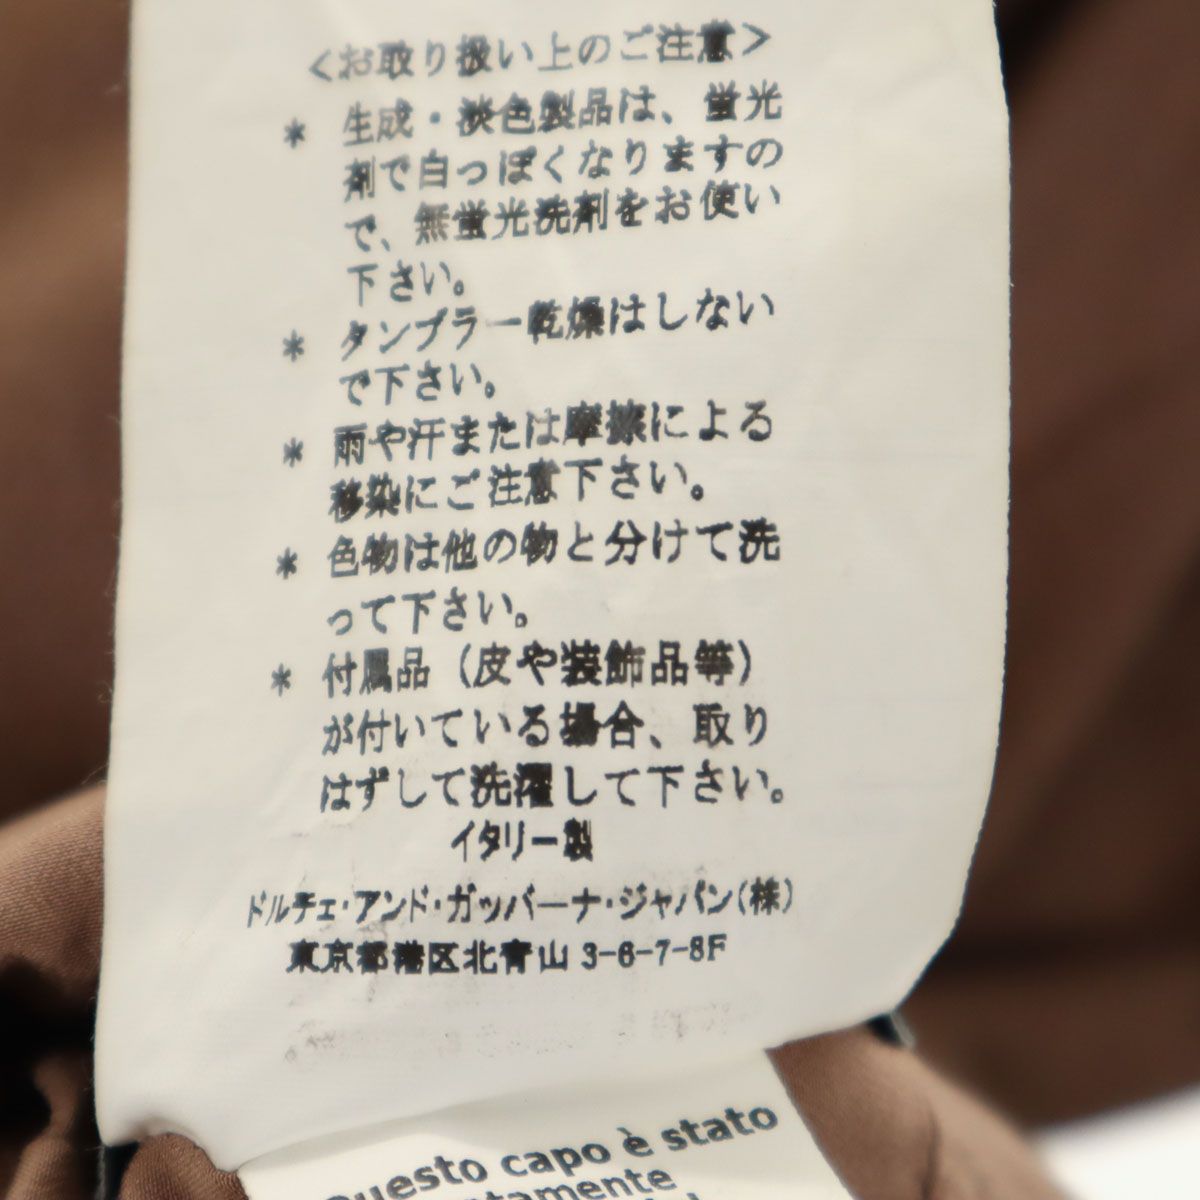 <お取り扱い上のご注意>
* 生成・淡色製品は、蛍光
剤で白っぽくなりますの
で、無蛍光洗剤をお使い
下さい。
* タンブラー乾燥はしない
で下さい。
* 雨や汗または摩擦による
移染にご注意下さい。
* 色物は他の物と分けて洗
って下さい。
* 付属品（皮や装飾品等）
が付いている場合、取り
はずして洗濯して下さい。
イタリー製
ドルチェ・アンド・ガッバーナ・ジャパン(株)
東京都港区北青山 3-6-7-8F
Questo capo è stato